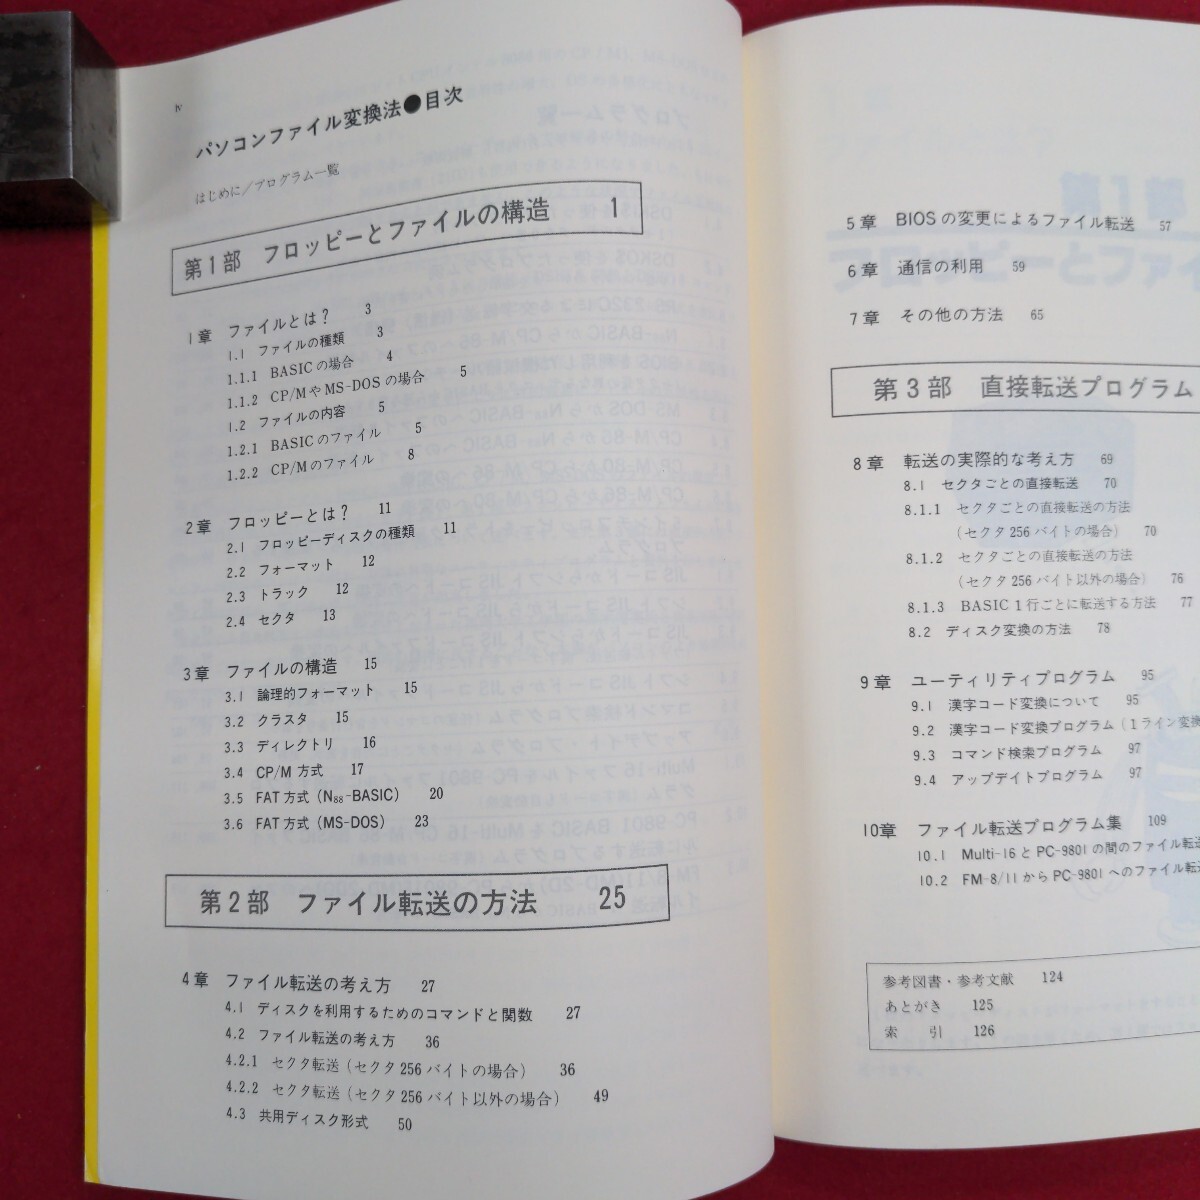 iv
パソコンファイル変換法●目次
はじめに／プログラム一覧
第1部 フロッピーとファイルの構造 1
1章 ファイルとは？ 3
1.1 ファイルの種類 3
1.1.1 BASICの場合 4
1.1.2 CP/MやMS-DOSの場合 5
1.2 ファイルの内容 5
1.2.1 BASICのファイル 5
1.2.2 CP/Mのファイル 8
2章 フロッピーとは？ 11
2.1 フロッピーディスクの種類 11
2.2 フォーマット 12
2.3 トラック 12
2.4 セクタ 13
3章 ファイルの構造 15
3.1 論理的フォーマット 15
3.2 クラスタ 15
3.3 ディレクトリ 16
3.4 CP/M方式 17
3.5 FAT方式（N88-BASIC） 20
3.6 FAT方式（MS-DOS） 23
第2部 ファイル転送の方法 25
4章 ファイル転送の考え方 27
4.1 ディスクを利用するためのコマンドと関数 27
4.2 ファイル転送の考え方 36
4.2.1 セクタ転送（セクタ256バイトの場合） 36
4.2.2 セクタ転送（セクタ256バイト以外の場合） 49
4.3 共用ディスク形式 50
5章 BIOSの変更によるファイル転送 57
6章 通信の利用 59
7章 その他の方法 65
第3部 直接転送プログラム
8章 転送の実際的な考え方 69
8.1 セクタごとの直接転送 70
8.1.1 セクタごとの直接転送の方法
（セクタ256バイトの場合） 70
8.1.2 セクタごとの直接転送の方法
（セクタ256バイト以外の場合） 76
8.1.3 BASIC1行ごとに転送する方法 77
8.2 ディスク変換の方法 78
9章 ユーティリティプログラム 95
9.1 漢字コード変換について 95
9.2 漢字コード変換プログラム（1ライン変換
9.3 コマンド検索プログラム 97
9.4 アップデイトプログラム 97
10章 ファイル転送プログラム集 109
10.1 Multi-16とPC-9801の間のファイル転送
10.2 FM-8/11からPC-9801へのファイル転送
参考図書・参考文献 124
あとがき 125
索 引 126